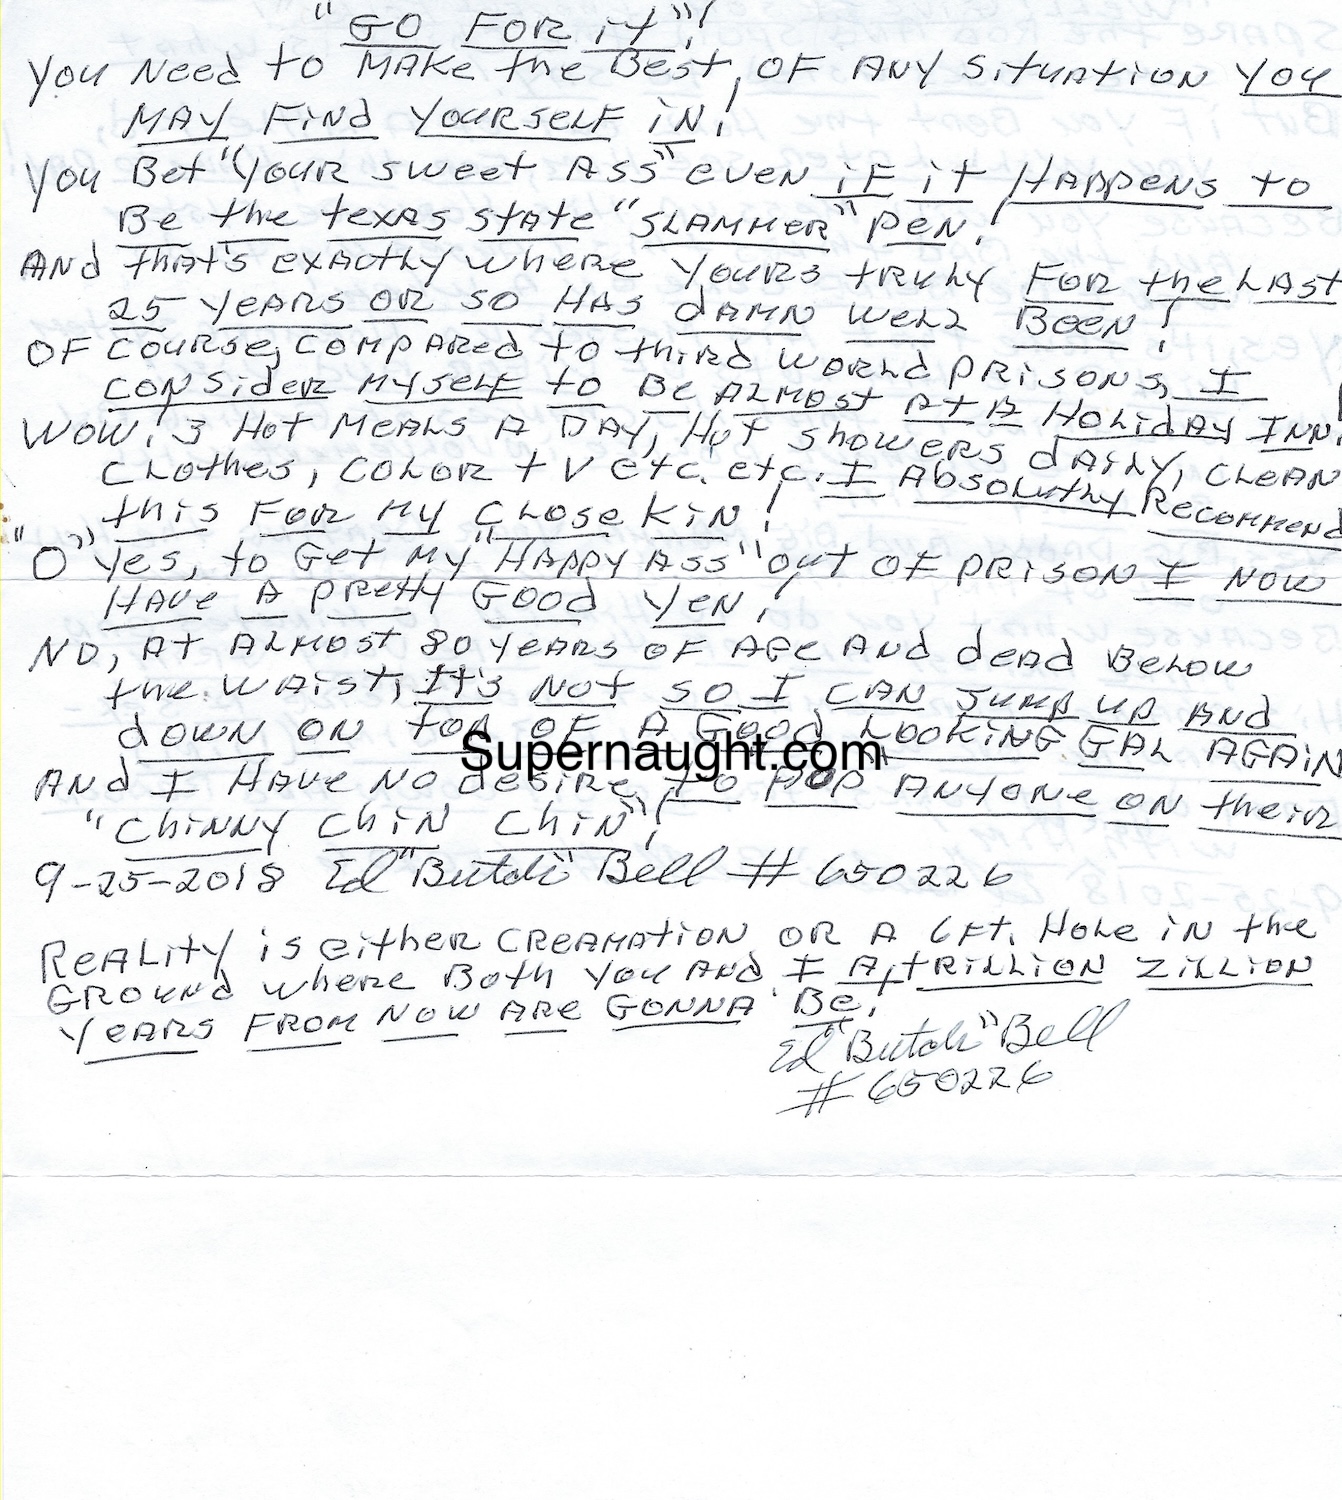 "GO FOR it"!
YOU NEED to MAKE the BEST, OF ANY SituAtiON YOU
MAY FIND YOURSELF IN!
YOU Bet "YOUR sweet ASS" EVEN iF it HAPPENS to
Be the texas state "SLAMMER" PEN!
AND that's EXACtLY WHERE YOURS tRULY FOR the LAST
25 YEARS OR SO HAS DAMN WELL BEEN!
OF COURSE, COMPARED to third WORLD PRISONS, I
CONSider MYSELF to Be ALMOST At A HOLiDAY INN!
WOW! 3 Hot MEALS A DAY, Hot SHOWERS DAiLY, CLEAN
CLOthes, COLOR t V etc. etc. I AbsoLutLY RECOMMEND
this FOR MY CLOSE KIN!
"O" YES, to Get MY "HAPPY ASS" out OF PRISON I NOW
HAVE A PREttY GOOD YEN!
NO, At ALMOST 80 YEARS OF AGE AND deAD BELOW
the WAIST, It'S NOT SO I CAN JUMP UP AND
dOWN ON tOP OF A GOOD LOOKING GAL AGAIN
Supernaught.com
AND I HAVE NO desiRE to POP ANYONE ON their
"CHINNY CHIN CHIN"!
9-25-2018 Ed "Butch" Bell # 650226
REALITY is either CREAMATION OR A 6Ft. HOLE IN the
GROUND where BOTH YOU AND I A tRILLION ZILLION
YEARS FROM NOW ARE GONNA BE!
Ed "Butch" Bell
# 650226